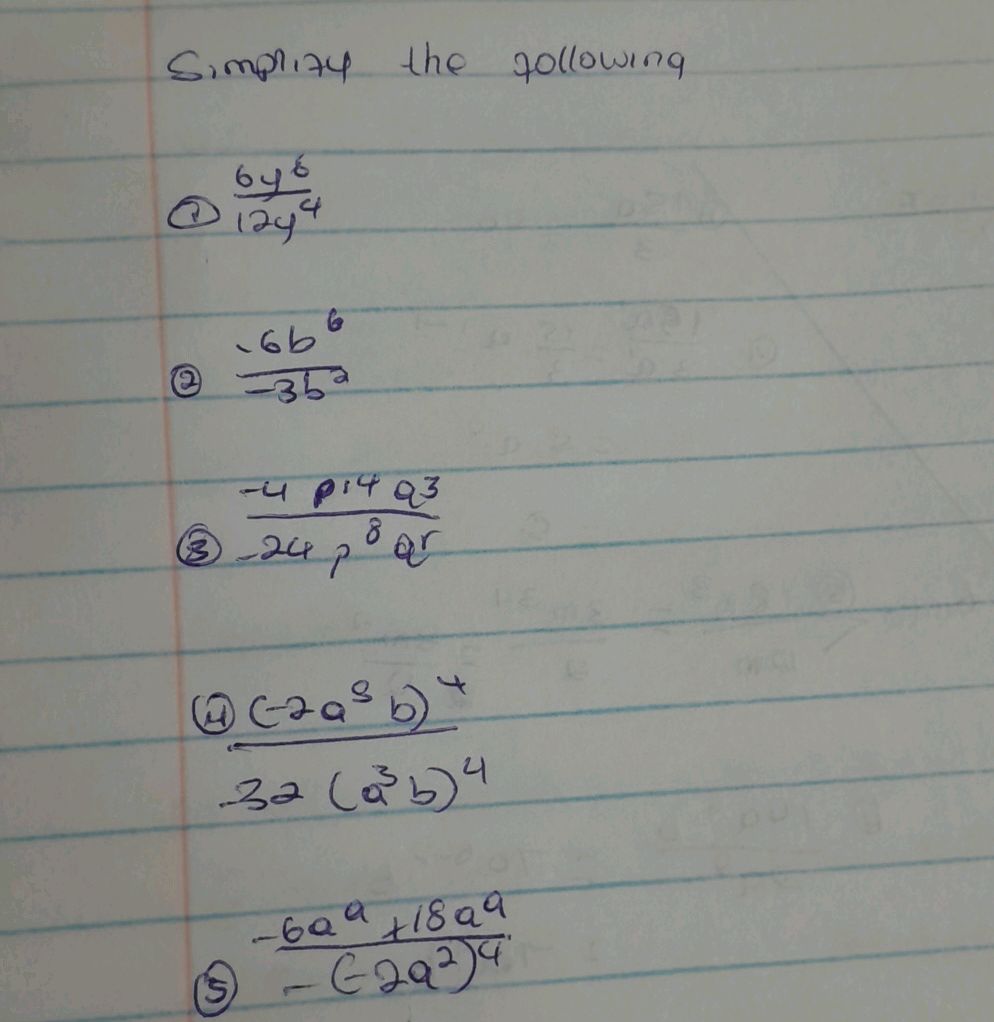 Simplify the following
① 6y⁶
12y⁴
② -6b⁶
-3b²
③ -4 p14 q3
-24 p⁸ q⁵
④ (-2a³ b)⁴
-32 (a³b)⁴
⑤ -6a⁹ +18a⁹
-(-2a²)⁴